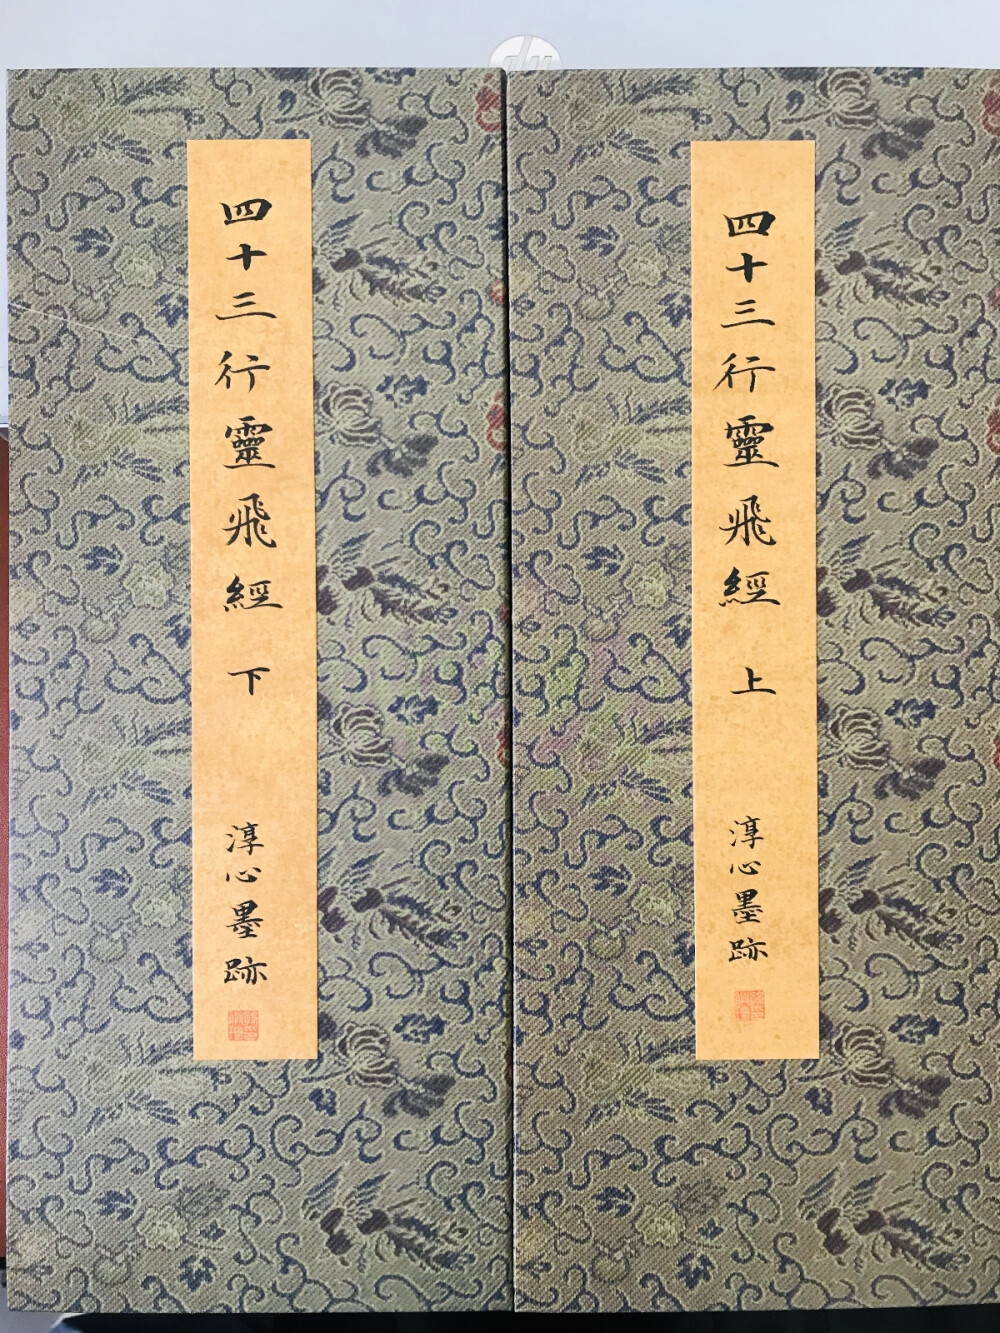 四十三行靈飛經 上
淳心墨跡
四十三行靈飛經 下
淳心墨跡